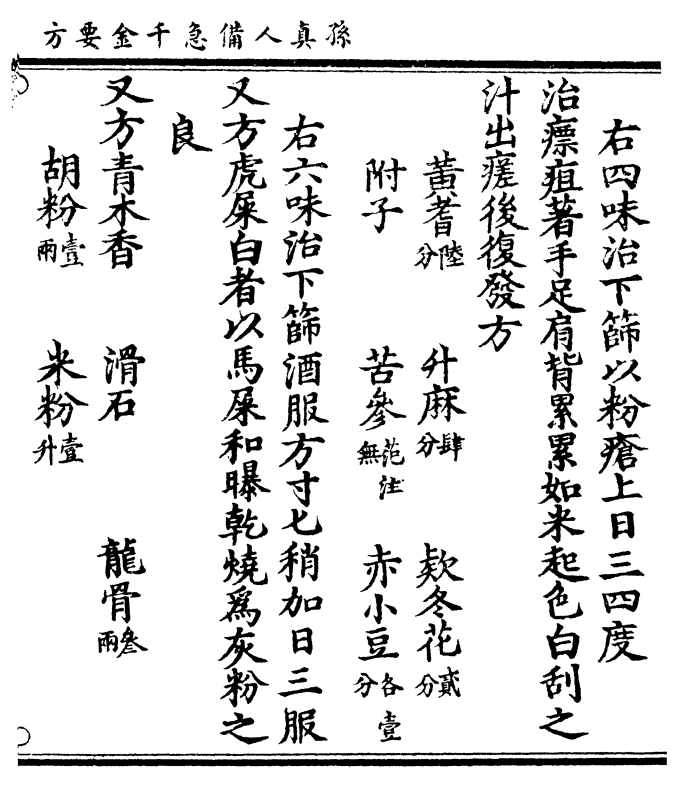 孫真人備急千金要方
右四味治下篩以粉瘡上日三四度
治瘭疽著手足肩背累累如米起色白刮之
汁出瘥後復發方
黃耆陸分 升麻肆分 款冬花貳分
附子 苦參范注無 赤小豆各壹分
右六味治下篩酒服方寸匕稍加日三服
又方虎屎白者以馬屎和曝乾燒為灰粉之
良
又方青木香 滑石 龍骨叄兩
胡粉壹兩 米粉壹升